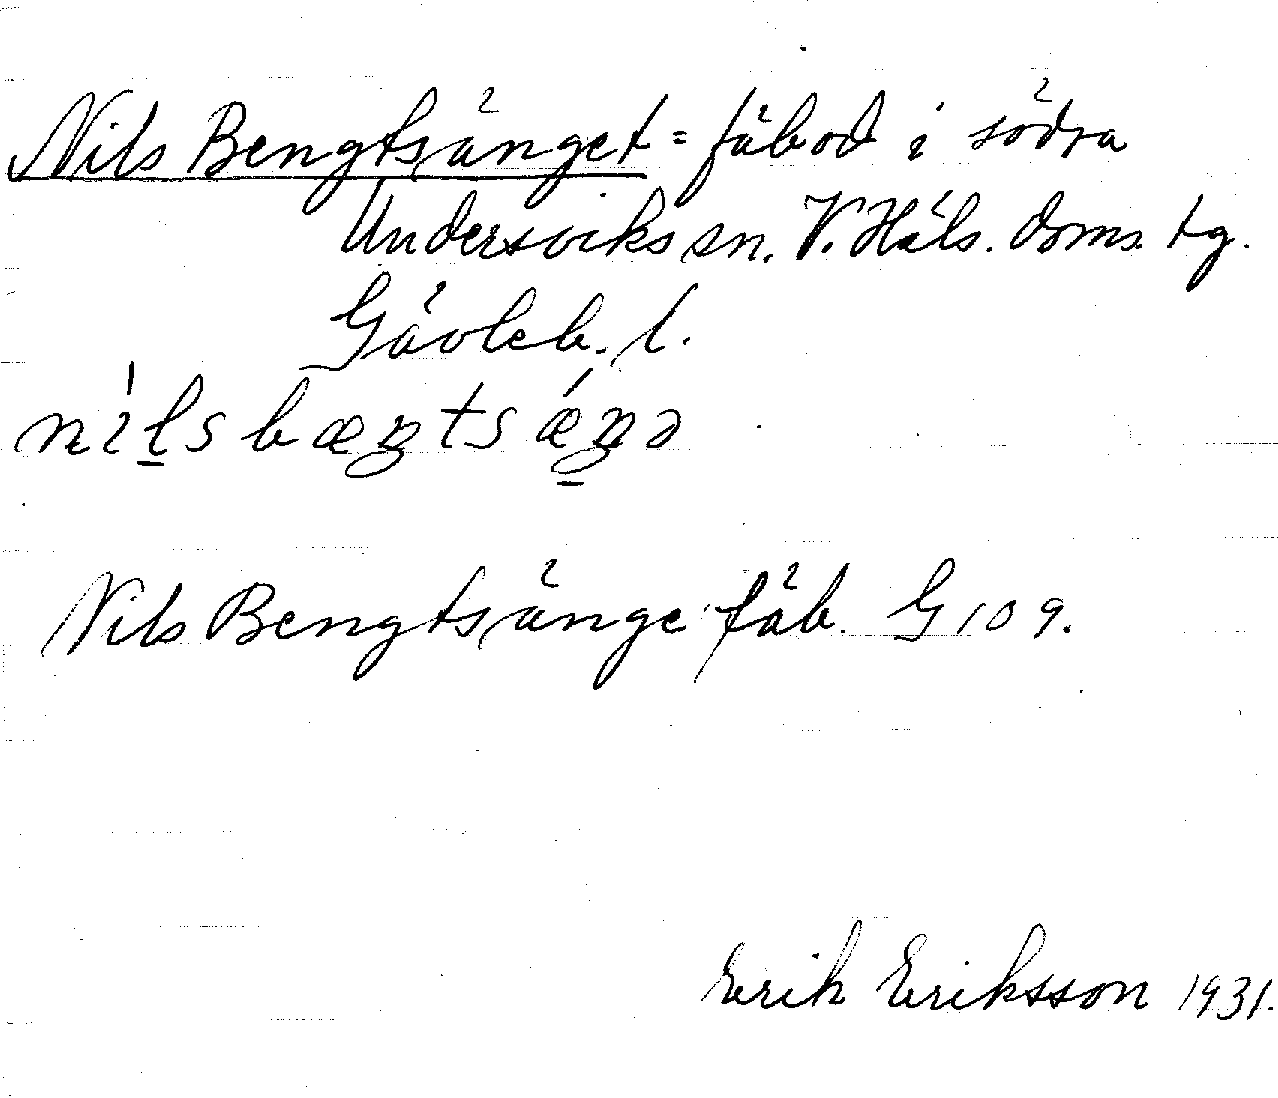 Nils Bengtsänget = fäbod i södra
Undersviks sn. V. Häls. doms. tg.
Gävleb. l.
nilsbæŋtsǽŋə
Nils Bengtsänge fäb. G 109.
Erik Eriksson 1931.